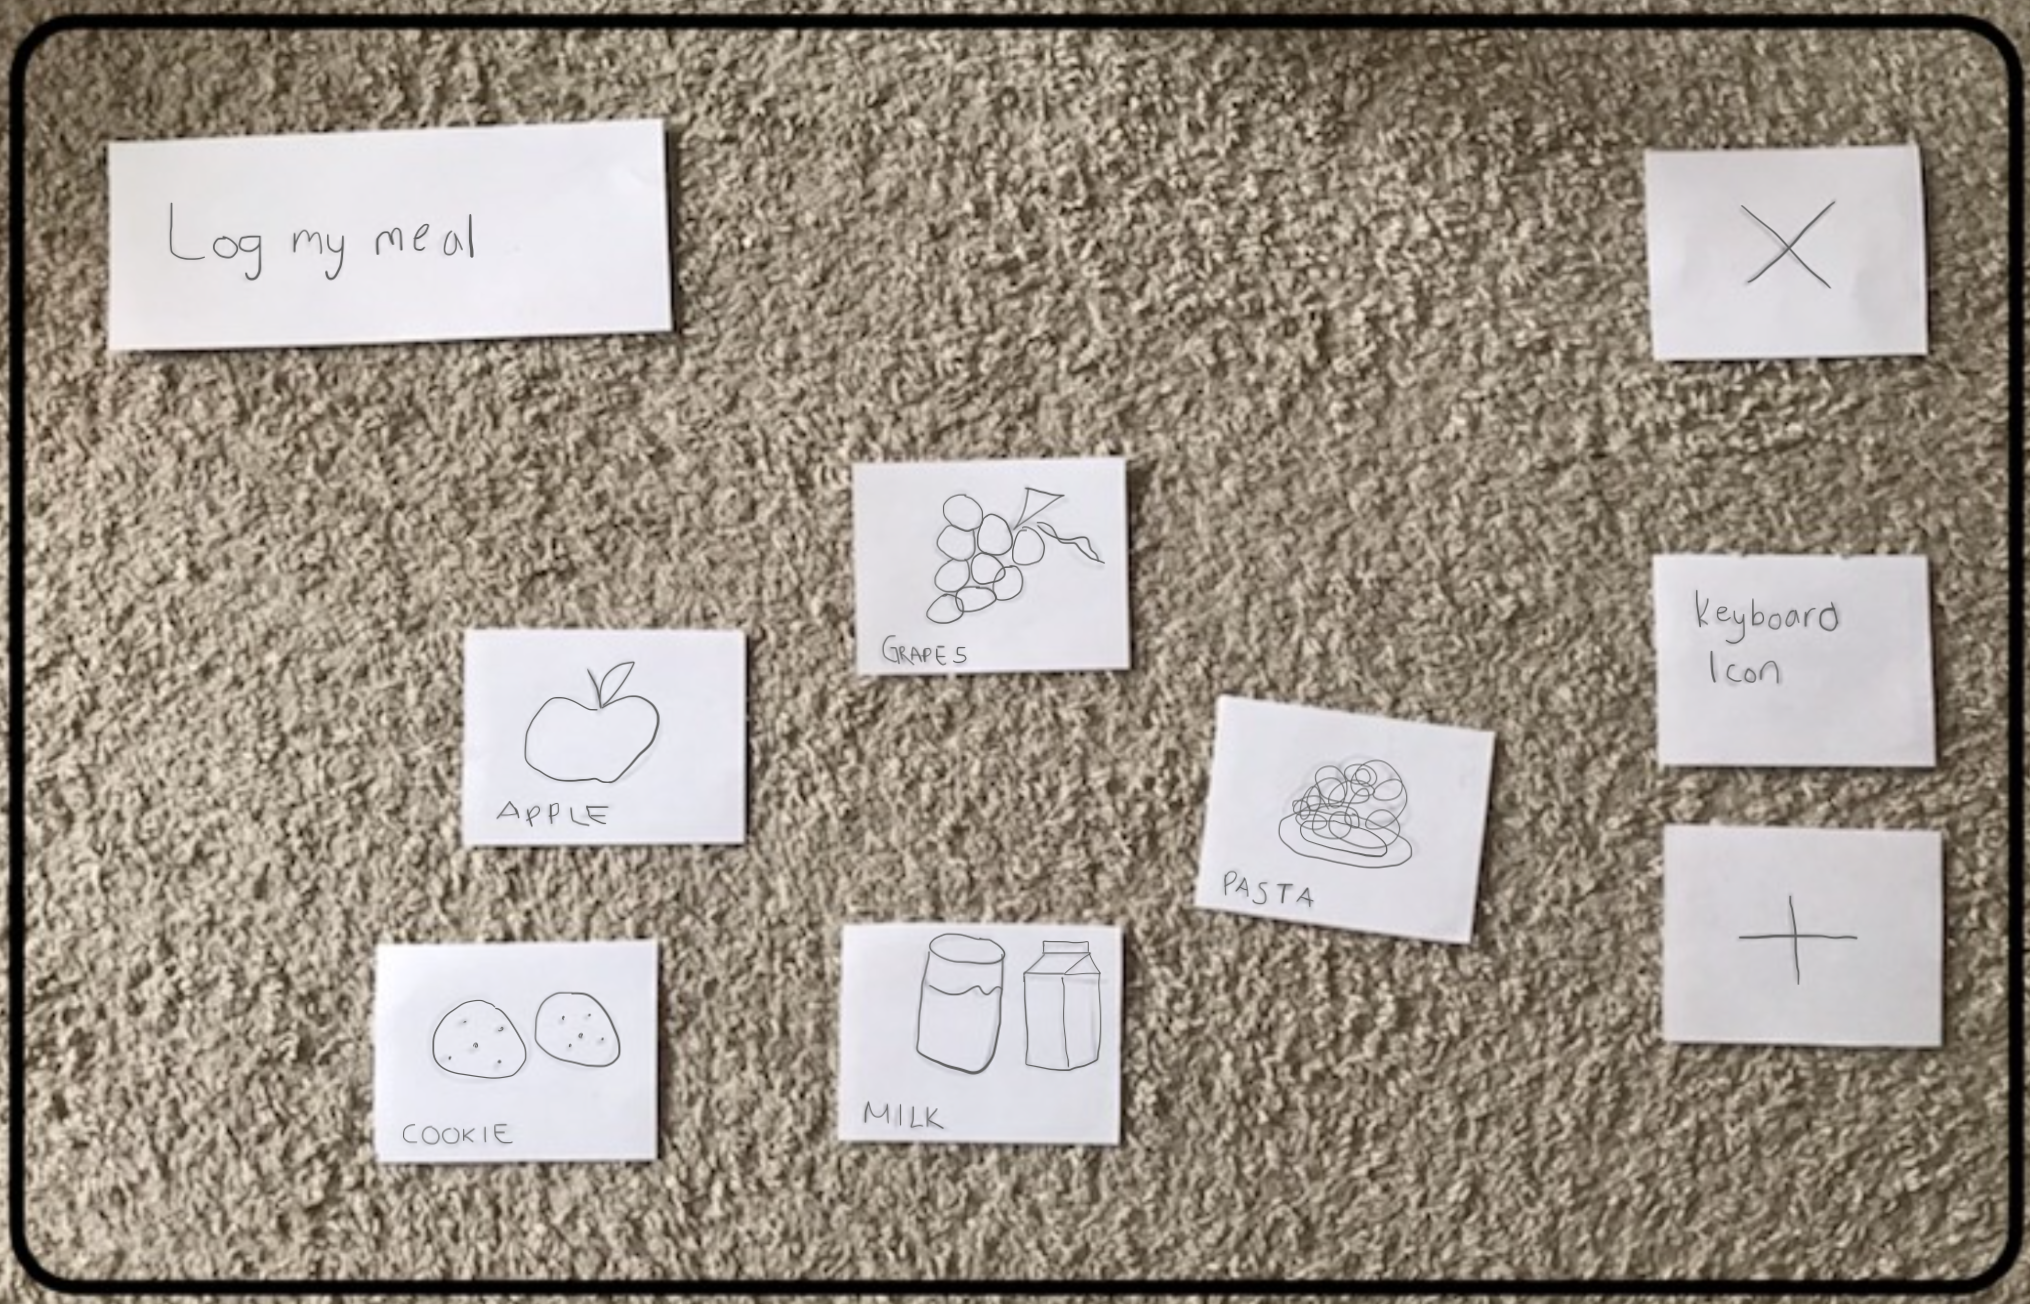 Log my meal
GRAPES
Keyboard
Icon
APPLE
PASTA
COOKIE
MILK